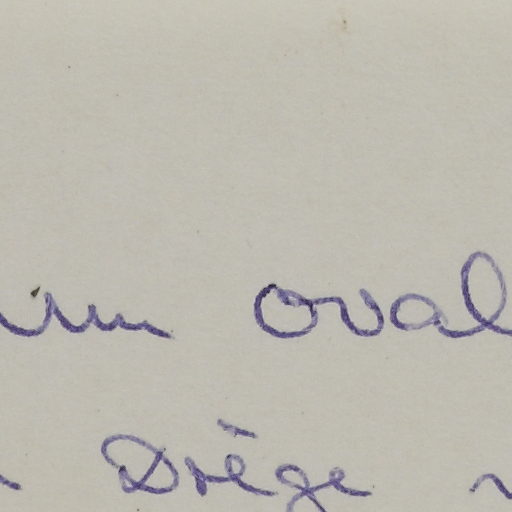 oval
Drège